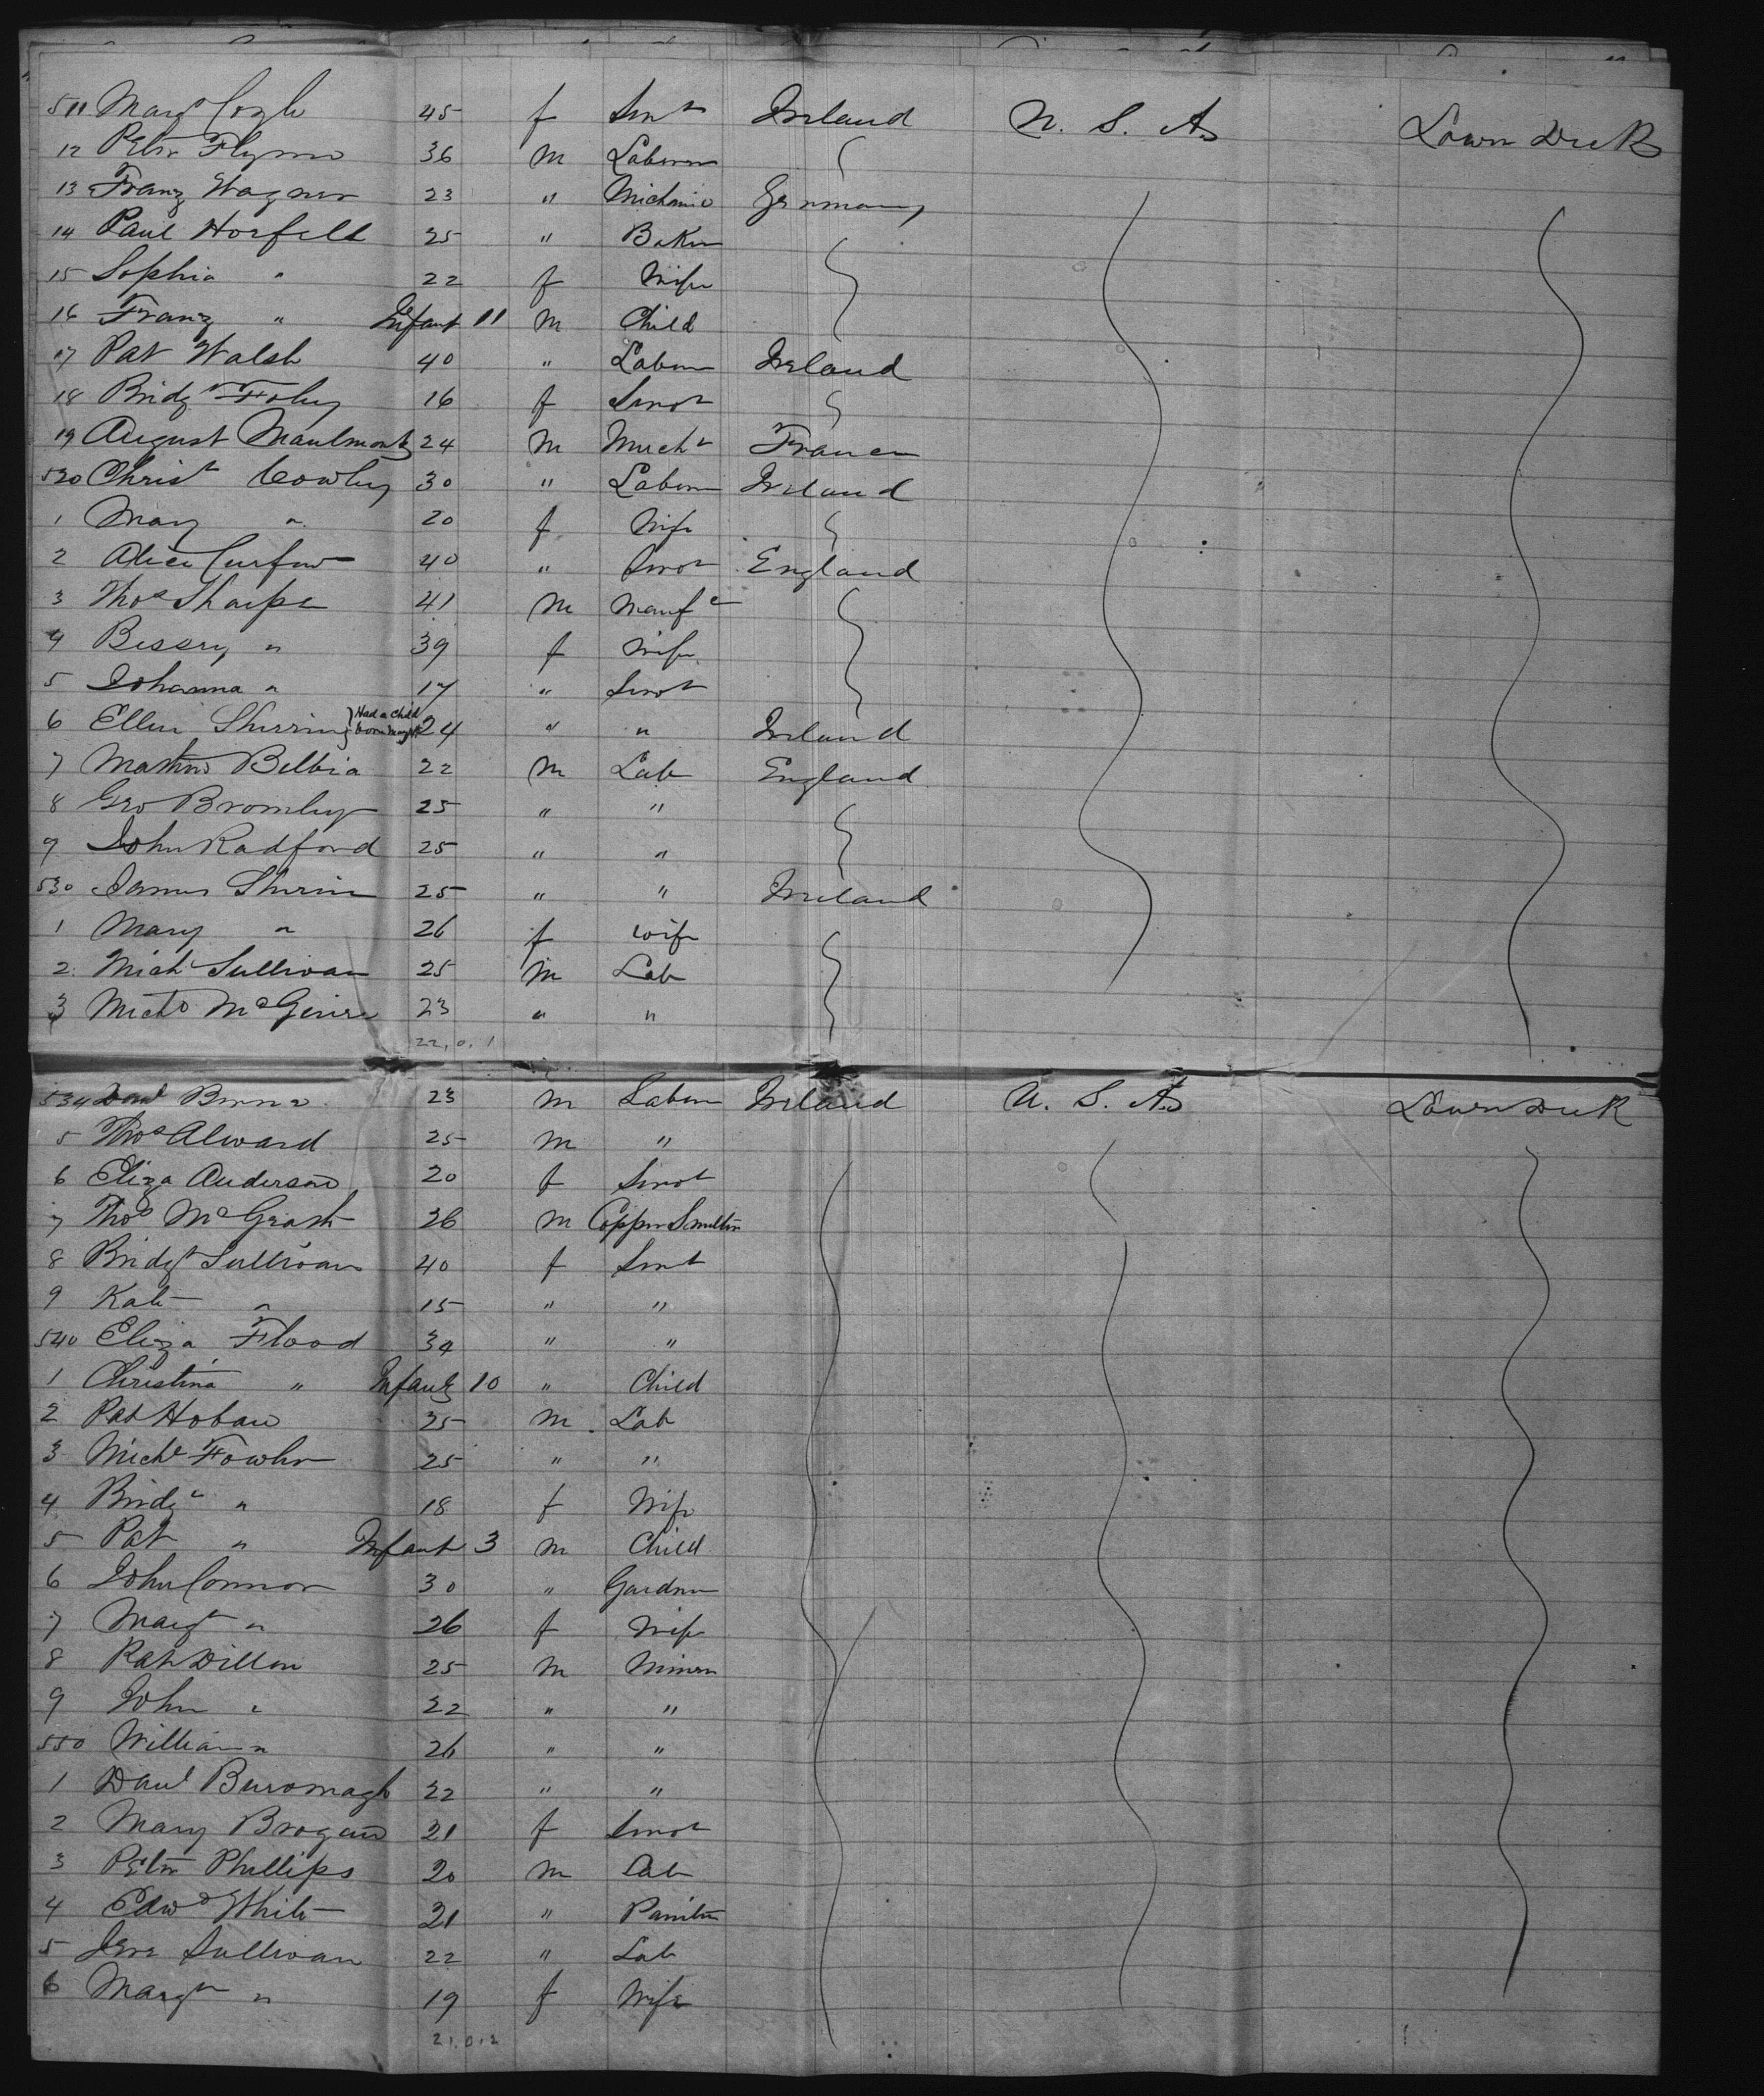 511 Margt Coyle 45 f Servt Ireland U. S. A. Lower Deck
12 Peter Flynn 36 m Laborer
13 Franz Wagner 23 " Mechanic Germany
14 Paul Horfeld 25 " Baker
15 Sophia " 22 f Wife
16 Franz " Infant 11 m Child
17 Pat Walsh 40 " Laborer Ireland
18 Bridgt Foley 16 f Servt
19 August Maulmontz 24 m Mercht France
520 Christ Cowley 30 " Laborer Ireland
1 Mary " 20 f Wife
2 Alice Curfew 40 " Servt England
3 Thos Sharpe 41 m Manufr
4 Bessey " 39 f Wife
5 Johanna " 17 " Servt
6 Ellen Sherring } Had a child born 24 " " Ireland
7 Matthew Belbia 22 m Lab England
8 Geo Bromley 25 " "
9 John Radford 25 " "
530 James Sherin 25 " " Ireland
1 Mary " 26 f wife
2 Mich Sullivan 25 m Lab
3 Michl McGuire 23 " "
22, 0, 1
534 Danl Burns 23 m Laborer Ireland U. S. A. Lower Deck
5 Thos Alward 25 m "
6 Eliza Anderson 20 f Servt
7 Thos McGrath 26 m Copper Smelter
8 Bridgt Sullivan 40 f Servt
9 Kate " 15 " "
540 Eliza Flood 34 " "
1 Christina " Infant 10 " Child
2 Pat Hoban 25 m Lab
3 Michl Fowler 25 " "
4 Bridgt " 18 f Wife
5 Pat " Infant 3 m Child
6 John Connor 30 " Gardner
7 Margt " 26 f Wife
8 Pat Dillon 25 m Miner
9 John " 22 " "
550 William " 26 " "
1 Danl Buromagh 22 " "
2 Mary Brogan 21 f Servt
3 Peter Phillips 20 m Lab
4 Edwd White 21 " Painter
5 Jere Sullivan 22 " Lab
6 Margt " 19 f Wife
21, 0, 2